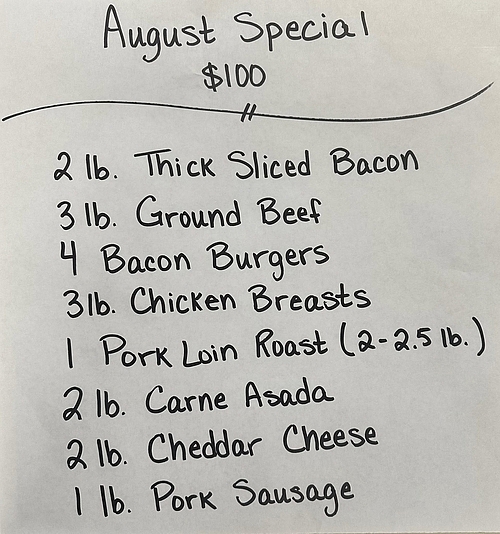 August Special
$100
2 lb. Thick Sliced Bacon
3 lb. Ground Beef
4 Bacon Burgers
3 lb. Chicken Breasts
1 Pork Loin Roast (2-2.5 lb.)
2 lb. Carne Asada
2 lb. Cheddar Cheese
1 lb. Pork Sausage